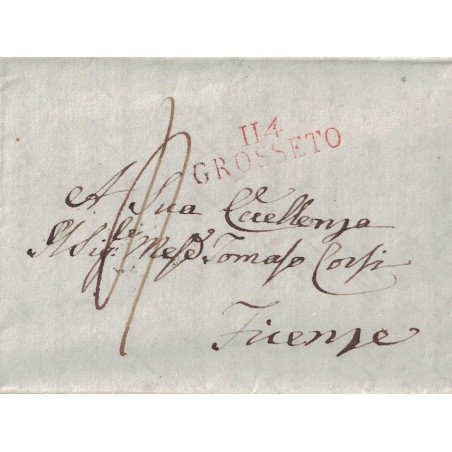 114
GROSSETO
A Sua Eccellenza
Il Sig.r March.e Tomaso Corsi
Firenze